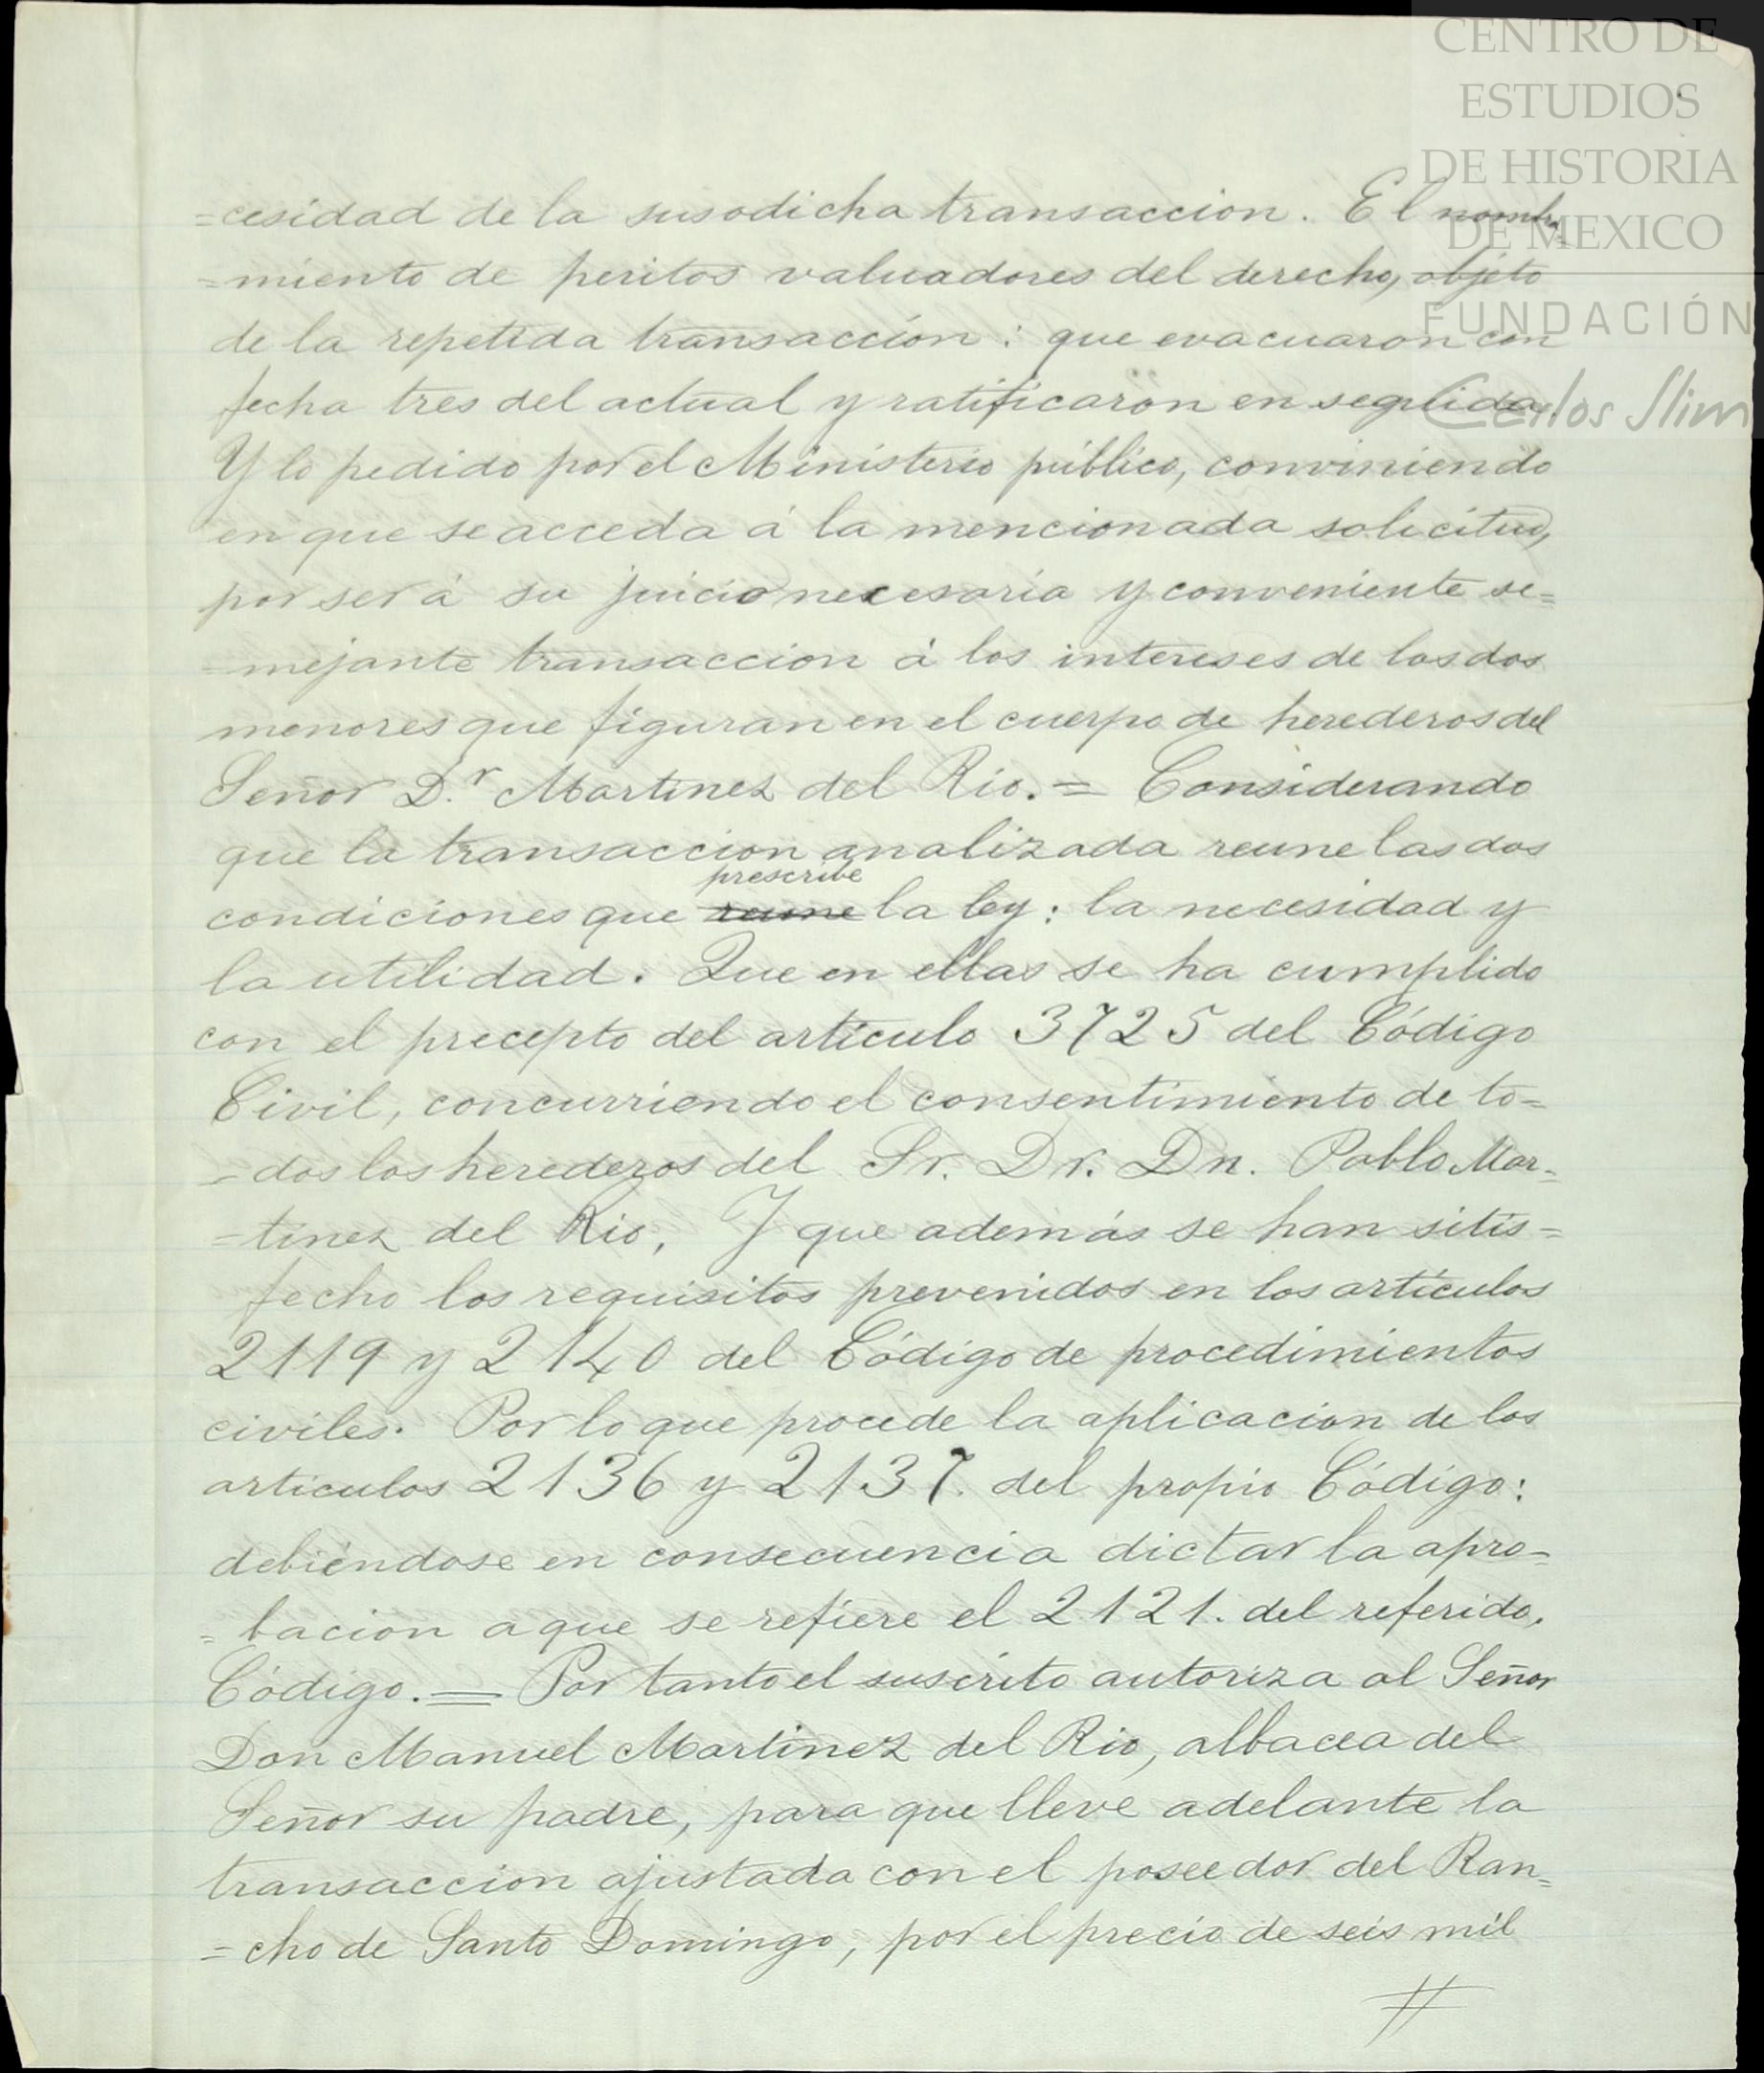 CENTRO DE
ESTUDIOS
DE HISTORIA
DE MEXICO
FUNDACIÓN
Carlos Slim
=cesidad de la susodicha transaccion. El nombra
=miento de peritos valuadores del derecho, objeto
de la repetida transacción: que evacuaron con
fecha tres del actual y ratificaron en seguida.
Y lo pedido por el Ministerio público, conviniendo
en que se acceda á la mencionada solicitud,
por ser á su juicio necesaria y conveniente se=
=mejante transaccion á los intereses de los dos
menores que figuran en el cuerpo de herederos del
Señor D.r Martinez del Rio. = Considerando
que la transaccion analizada reune las dos
prescribe
condiciones que reune la ley: la necesidad y
la utilidad. Que en ellas se ha cumplido
con el precepto del artículo 3725 del Código
Civil, concurriendo el consentimiento de to=
=dos los herederos del Sr. Dr. Dn. Pablo Mar=
=tinez del Rio, Y que además se han sitis=
fecho los requisitos prevenidos en los artículos
2119 y 2140 del Código de procedimientos
civiles. Por lo que procede la aplicacion de los
articulos 2136 y 2137. del propio Código:
debiéndose en consecuencia dictar la apro=
=bacion a que se refiere el 2121. del referido.
Código.= Por tanto el suscrito autoriza al Señor
Don Manuel Martinez del Rio, albacea del
Señor su padre, para que lleve adelante la
transaccion ajustada con el poseedor del Ran=
=cho de Santo Domingo, por el precio de seis mil